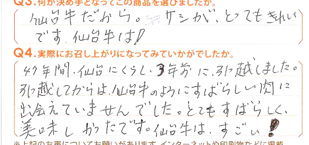 Q3.何が決め手となってこの商品を選びましたか。
仙台牛だから。サシが、とってもきれい
です。仙台牛は!
Q4.実際にお召し上がりになってみていかがでしたか。
47年間、仙台にくらし、3年前に、引っ越しました。
引越してからは、仙台牛のようにすばらしい肉に
出会えていませんでした。とてもすばらしく、
美味しかったです。仙台牛は、すごい!